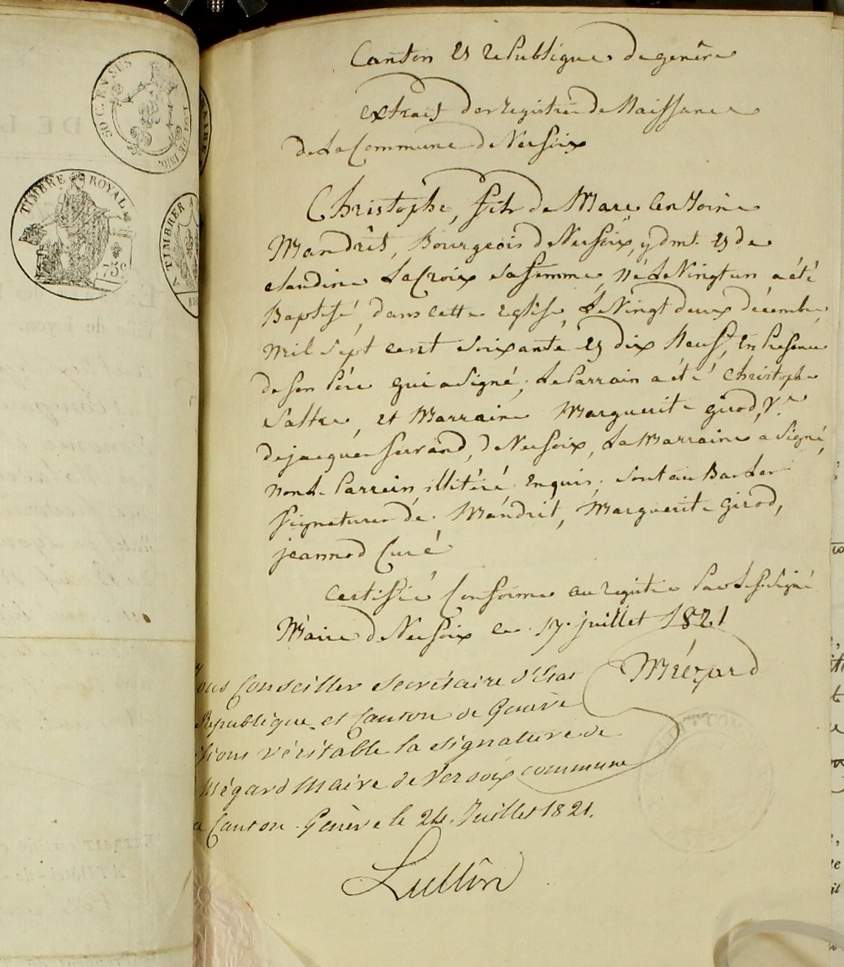 50 CEN. EN SUS
TIMBRE ROYAL
75c
A TIMBRER A
DE L
de Lyon
Canton et République de genêve
extrait des registres de Naissance
de La Commune de Versoix
Christophe, fils de Marc Antoine
Mandrît, Bourgeois de Versoix, y dmt. et de
claudine LaCroix sa femme né Le Vingt un a été
Baptisé, dans cette Eglise, Le Vingt deux décembre
Mil Sept cent soixante et dix Neuf, en Présence
de Son Père qui a signé; Le Parrain a été Christophe
et Marraine Marguerite girod, Ve.
de jacques ferrand, de Versoix, La Marraine a Signé,
non le Parrein, illitéré enquis; sont au Bas les
signatures de Mandrit, Marguerite girod,
jeannod Curé
Certifié Conforme au registre Par le Ssigné
Maire de Versoix ce 17. juillet 1821
Mégard
Nous Conseiller Secrétaire d'Etat
République et Canton de Genève
véritable la signature de
Mégard Maire de Versoix commune
Canton. Genève le 24. Juillet 1821.
Lullin